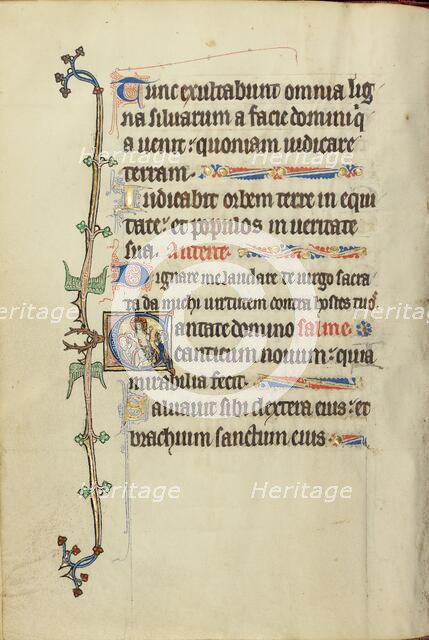 Tunc exultabunt omnia lig
na siluarum a facie domini q
a uenit: quoniam iudicare
terram.
Iudicabit orbem terre in equi
tate: et populos in ueritate
sua. Antene.
Dignare me laudare te uirgo sacra
ta da michi uirtutem contra hostes tuos.
Cantate domino salme.
canticum nouum: quia
mirabilia fecit.
Saluauit sibi dextera eius: et
brachium sanctum eius.
Heritage
Heritage
Heritage
Heritage
Heritage
Heritage